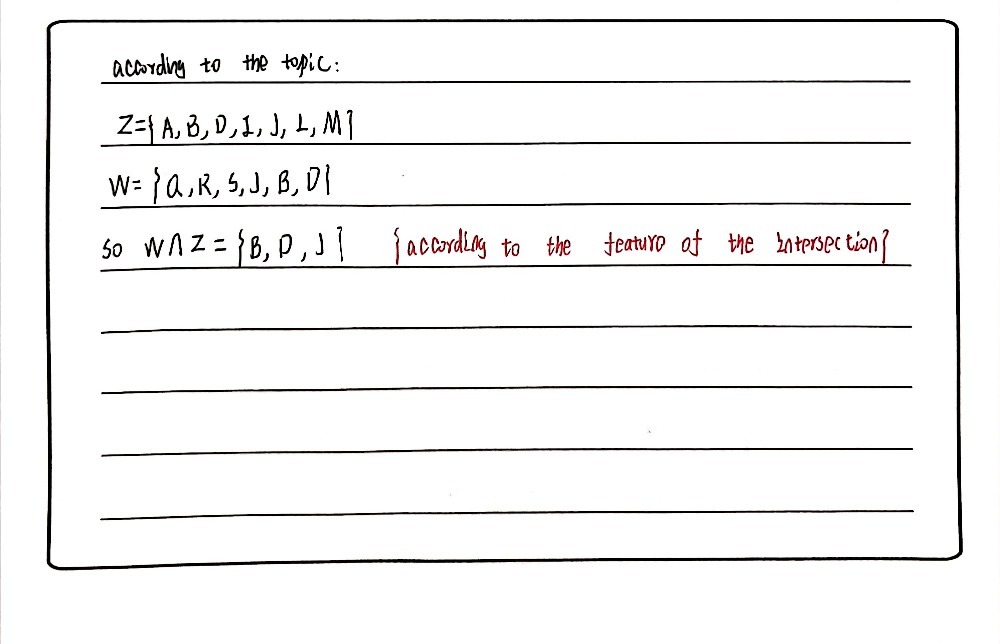 according to the topic:
Z={A, B, D, I, J, L, M}
W= {Q, R, S, J, B, D}
So W∩Z = {B, D, J} {according to the feature of the intersection}